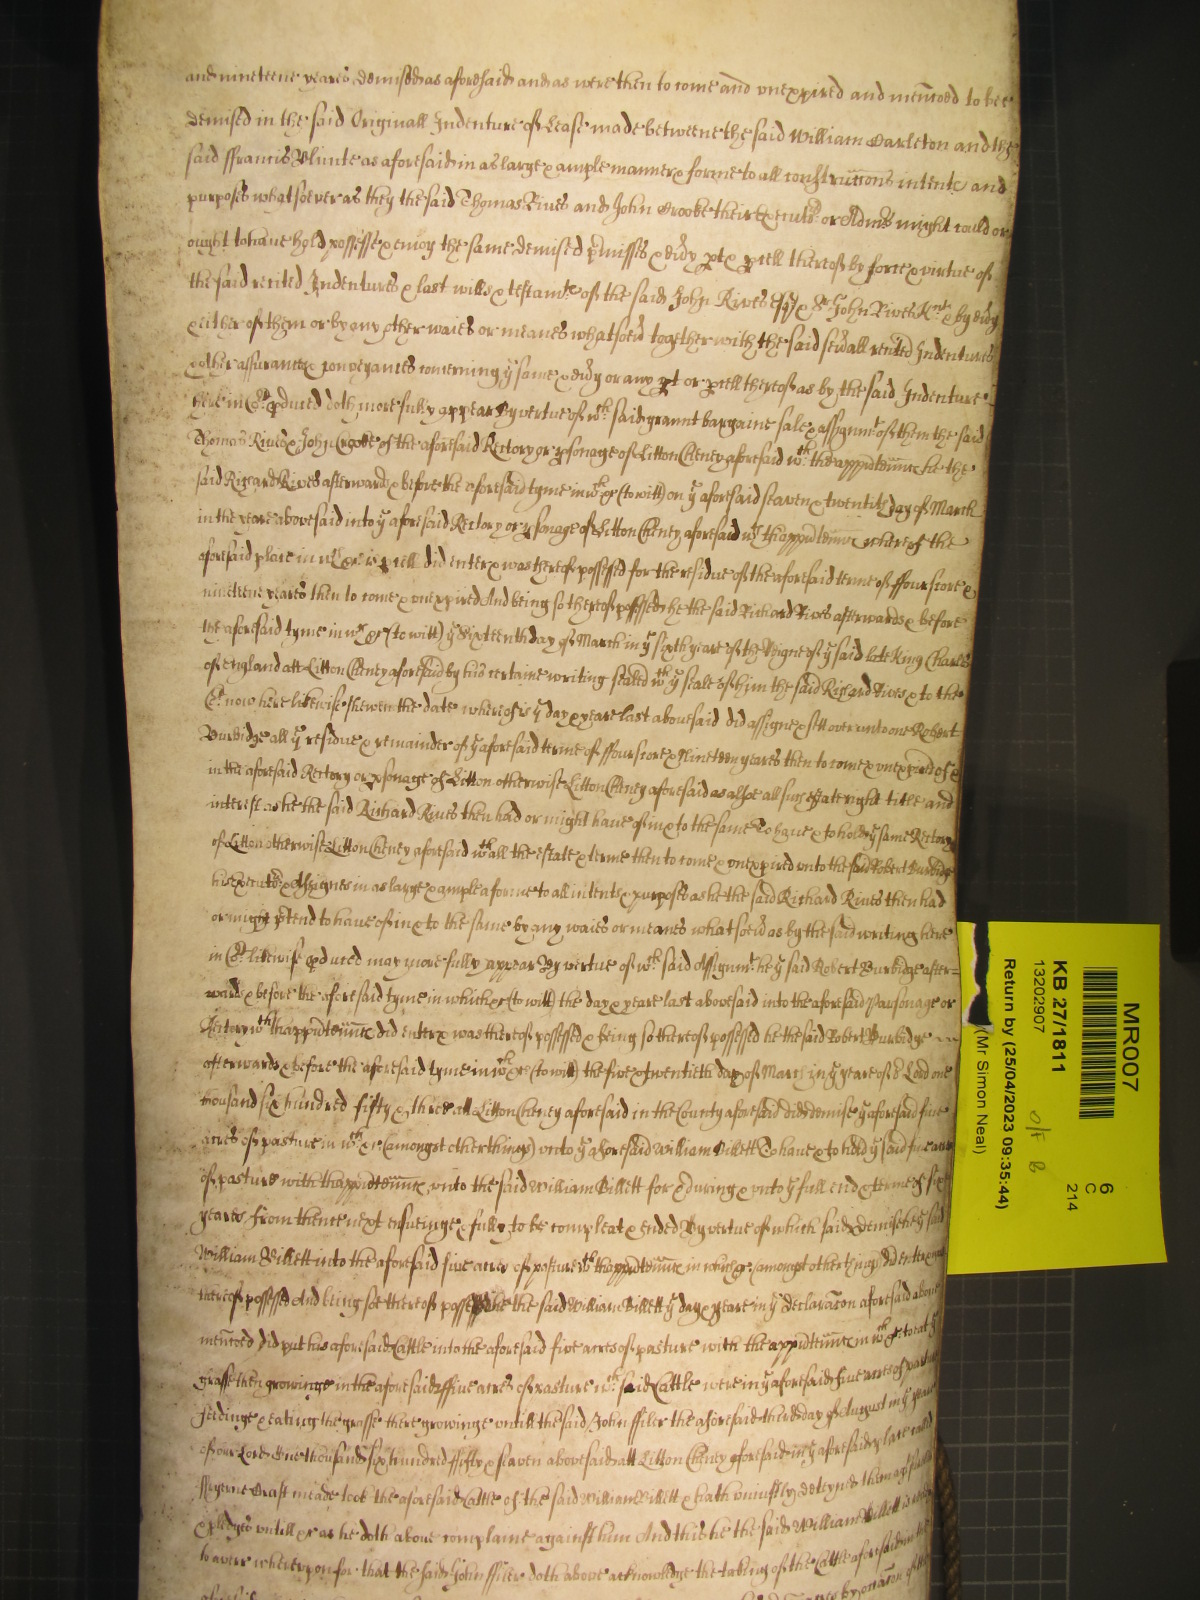 and nineteene yeares demised as aforesaid and as were then to come and unexpired and menc̃oed to bee
demised in the said Originall Indenture of Lease made betweene the said William Carleton and the
said ffrancis Blunte as aforesaid in as large & ample manner & forme to all construcc̃ons intents and
purposes whatsoever as they the said Thomas Rives and John Crooke their Execut.rs or Adm̃s might could or
ought to have hold possesse & enioy the same demised p̃misses & eṽy pt & p̲cell thereof by force & virtue of
the said recited Indentures & last wills & testam.ts of the said John Rives Esq. & S.r John Rives Kn.t & by eṽy
& either of them or by any other waies or meanes whatsoeṽ together with the said seṽall recited Indentures
& other assurances & conveyances concerning y.e same & eṽy or any pt or p̲cell thereof as by the said Indenture
here in C.t p̲duced doth more fully appear By vertue of w.ch said graunt bargaine sale & assignm.t of them the said
Thomas Rives & John Crooke of the aforesaid Rectory or p̲sonage of Litton Cheney aforesaid w.th thappurteñnc̃ he the
said Richard Rives afterwards & before the aforesaid tyme in w.ch &c (to witt) on y.e aforesaid seaven & twentith day of March
in the yeare abovesaid into y.e aforesaid Rectory or p̲sonage of Litton Cheney aforesaid w.th thappurteñnc̃ whereof the
aforesaid place in w.ch &c is p̲cell did enter & was thereof possessed for the residue of the aforesaid terme of ffourscore &
nineteene yeares then to come & unexpired And being so thereof possessed he the said Richard Rives afterwards & before
the aforesaid tyme in w.ch &c (to witt) y.e Sixteenth day of March in y.e sixth yeare of the Reigne of y.e said late King Charles
of England att Litton Cheney aforesaid by his certaine writing sealed w.th y.e seale of him the said Richard Rives & to the
C.t now here likewise shewen the date whereof is y.e day & yeare last abovesaid did assigne & sett over unto one Robert
Burbidge all y.e residue & remainder of y.e aforesaid terme of ffourscore & Nineteen yeares then to come & unexpired of &
in the aforesaid Rectory or p̲sonage of Litton otherwise Litton Cheney aforesaid as alsoe all such estate right title and
interest as he the said Richard Rives then had or might have of in & to the same To have & to hold y.e same Rectory
of Litton otherwise Litton Cheney aforesaid w.th all the estate & terme then to come & unexpired unto the said Robert Burbidge
his execut.rs & Assignes in as large & ample a forme to all intents & purposes as he the said Richard Rives then had
or might p̃tend to have of in & to the same by any waies or meanes whatsoeṽ as by the said writing here
in C.t likewise p̲duced may more fully appear By vertue of w.ch said Assignm.t he y.e said Robert Burbidge after=
wards & before the aforesaid tyme in which &c (to witt) the day & yeare last abovesaid into the aforesaid Parsonage or
Rectory w.th thappurteñnc̃ did enter & was thereof possessed & being so thereof possessed he the said Robert Burbidge
afterwards & before the aforesaid tyme in w.ch &c (to witt) the five & twentieth day of March in y.e yeare of o.r Lord one
thousand six hundred fifty & three att Litton Cheney aforesaid in the County aforesaid did demise y.e aforesaid five
acres of pasture in w.ch &c (amongst other things) unto y.e aforesaid William Billett To have & to hold y.e said five acres
of pasture with thappurteñnc̃ unto the said William Billett for & during & unto y.e full end & terme of six
yeares from thence next ensueinge & fully to be compleat & ended By vertue of which said demise he y.e said
William Billett into the aforesaid five acres of pasture w.th thappurteñnc̃ in which &c (amongst other things) did enter & was
thereof possessed And being soe thereof possessed he the said William Billett y.e day & yeare in y.e declarac̃on aforesaid above
menc̃oed did put his aforesaid Cattle into the aforesaid five acres of pasture with the appurteñnc̃ in w.ch &c to eat y.e
grasse then growinge in the aforesaid ffive acres of pasture w.ch said Cattle were in y.e aforesaid five acres of pasture
feedinge & eating the grasse there growinge untill the said John ffiler the aforesaid third day of August in y.e yeare
of our Lord One thousand six hundred fifty & seaven abovesaid att Litton Cheney aforesaid in y.e aforesaid place called
made took the aforesaid Cattle of the said William Billett & hath uniustly deteyned them ag.t sureties
& pledges untill &c as he doth above complaine against him And this he the said William Billett is ready
to averr whereupon for that the said John ffiler doth above acknowledge the taking of the Cattle aforesaid in the
MR007
6
C
214
KB 27/1811
13202907
Return by (25/04/2023 09:35:44)
(Mr Simon Neal)